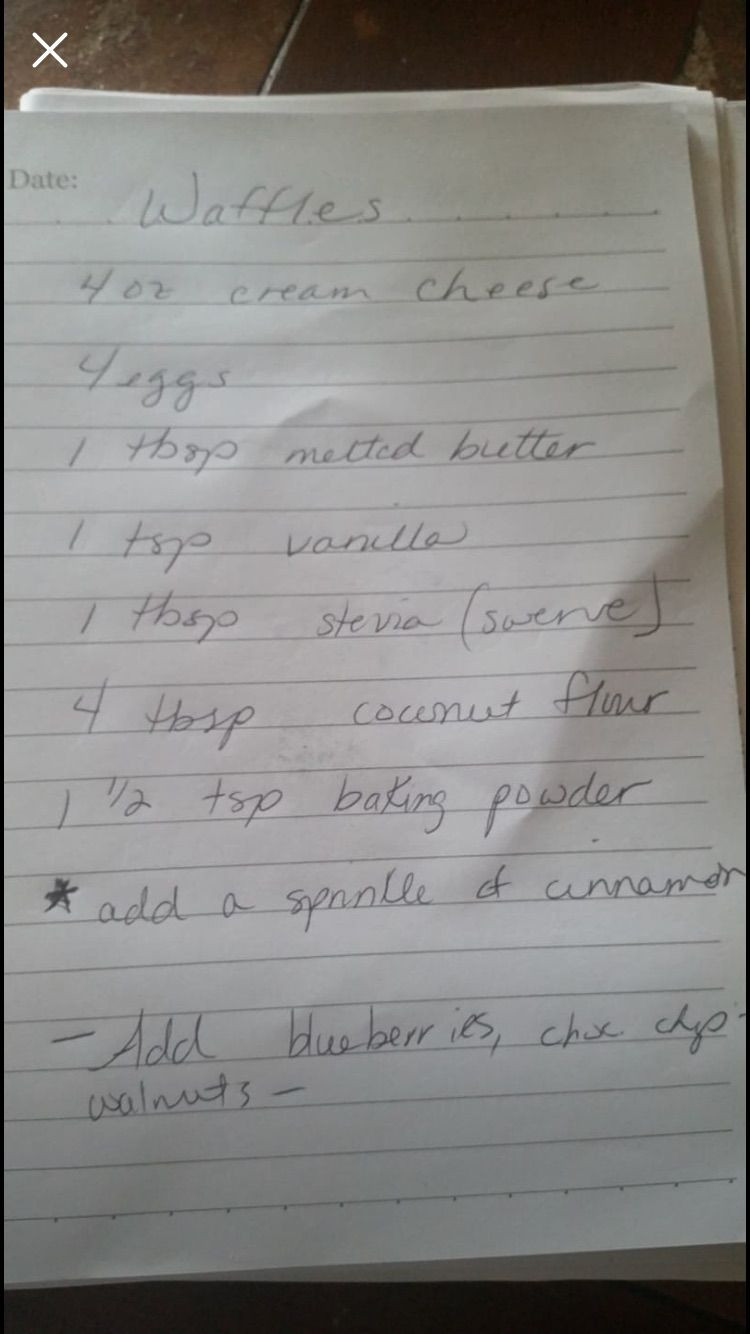 Date:
Waffles
4 oz cream cheese
4 eggs
1 tbsp melted butter
1 tsp vanilla
1 tbsp stevia (swerve)
4 tbsp coconut flour
1 1/2 tsp baking powder
* add a sprinkle of cinnamon
- Add blueberries, choc. chip
walnuts -